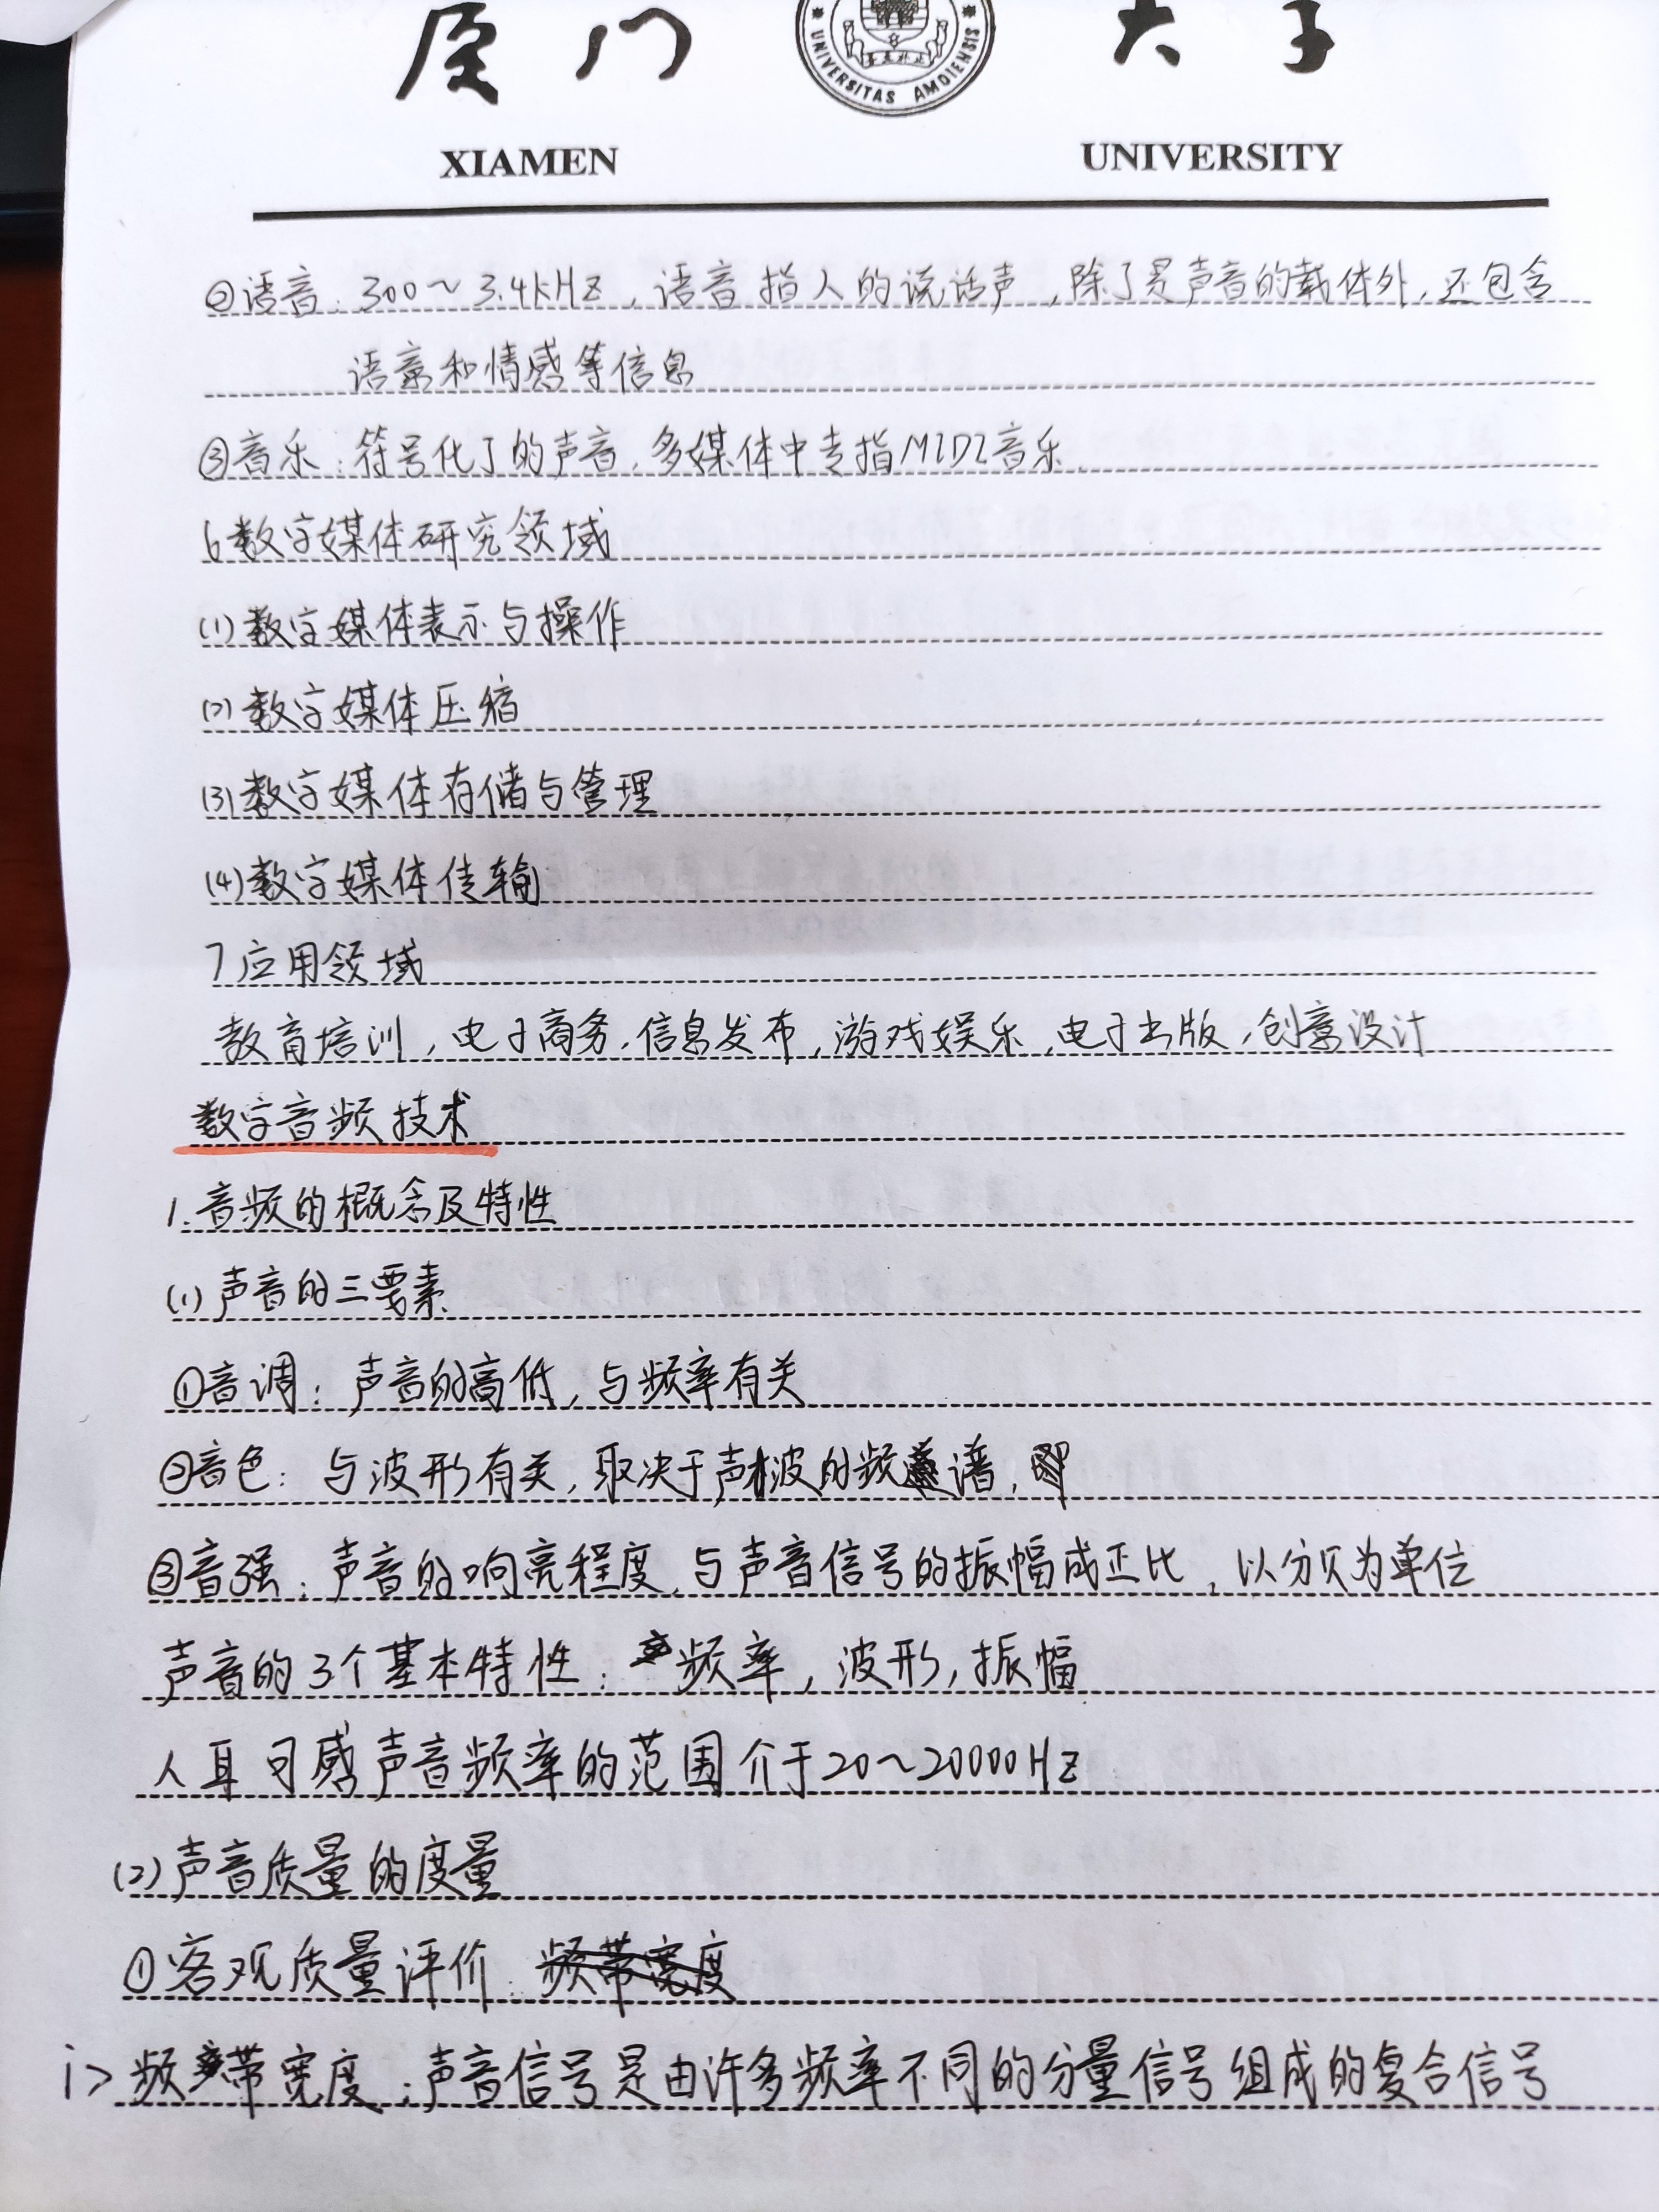 厦门 大学
UNIVERSITAS AMOIENSIS
XIAMEN UNIVERSITY
②语音：300～3.4kHz，语音指人的说话声，除了是声音的载体外，还包含
语意和情感等信息
③音乐：符号化了的声音，多媒体中专指MIDI音乐
6数字媒体研究领域
(1)数字媒体表示与操作
(2)数字媒体压缩
(3)数字媒体存储与管理
(4)数字媒体传输
7应用领域
教育培训，电子商务，信息发布，游戏娱乐，电子出版，创意设计
数字音频技术
1.音频的概念及特性
(1)声音的三要素
①音调：声音的高低，与频率有关
②音色：与波形有关，取决于声波的频谱，
③音强：声音的响亮程度，与声音信号的振幅成正比，以分贝为单位
声音的3个基本特性：频率，波形，振幅
人耳可感声音频率的范围介于20～20000Hz
(2)声音质量的度量
①客观质量评价：频带宽度
i>频带宽度：声音信号是由许多频率不同的分量信号组成的复合信号